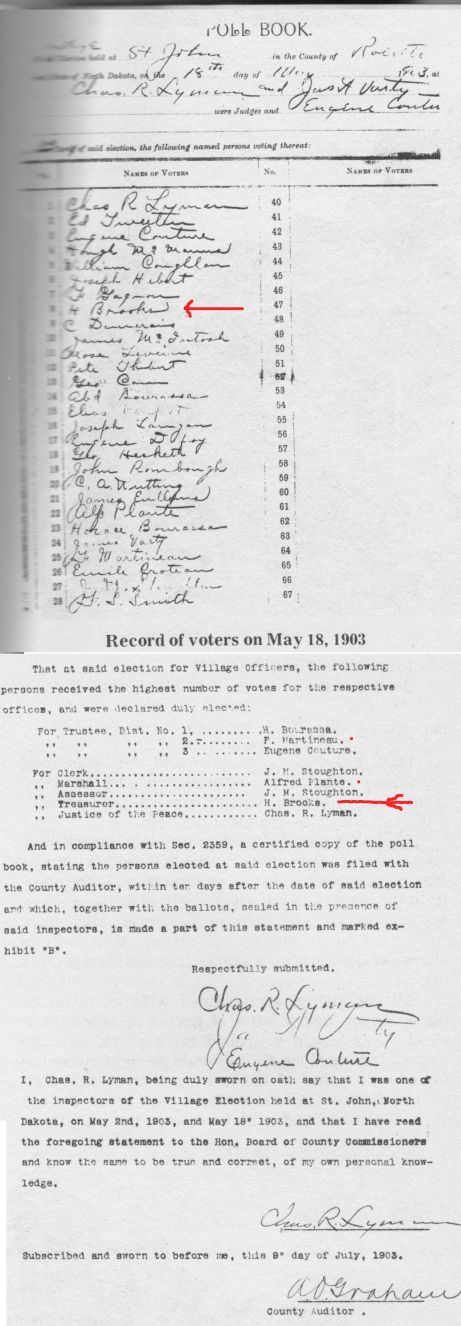 POLL BOOK.
Election held at St John in the County of Rolette
of North Dakota, on the 18th day of May 1903, at
Chas. R. Lyman and Jas A Varty
were Judges and Eugene Coutu
of said election, the following named persons voting thereat:
NAMES OF VOTERS No. NAMES OF VOTERS
1 Chas R Lyman 40
2 Ed Tweeten 41
3 Eugene Couture 42
4 Hugh Mc Manus 43
5 William Coughlan 44
6 Joseph Hebert 45
7 F Gagnon 46
8 H Brooks 47
9 C Dumerais 48
10 James Mc Intosh 49
11 50
12 Pete 51
13 Geo Cain 52
14 Abd Bourassa 53
15 Elias 54
16 Joseph Langan 55
17 Eugene 56
18 Geo Hesketh 57
19 John Rombough 58
20 C. A Nutting 59
21 James 60
22 Alf Plante 61
23 Horace Bourassa 62
24 James Varty 63
25 F Martineau 64
26 Emile Croteau 65
27 66
28 G. S. Smith 67
Record of voters on May 18, 1903
That at said election for Village Officers, the following
persons received the highest number of votes for the respective
offices, and were declared duly elected:
For Trustee, Dist. No. 1, .........H. Bourassa.
,, ,, ,, ,, 2.......... F. Martineau.
,, ,, ,, ,, 3 .. ....... Eugene Couture.
For Clerk..................... J. M. Stoughton.
,, Marshall... . ............. Alfred Plante.
,, Assessor................... J. M. Stoughton.
,, Treasurer.................. H. Brooks.
,, Justice of the Peace........... Chas. R. Lyman.
And in compliance with Sec. 2359, a certified copy of the poll
book, stating the persons elected at said election was filed with
the County Auditor, within ten days after the date of said election
and which, together with the ballots, sealed in the presence of
said inspectors, is made a part of this statement and marked ex-
hibit "B".
Respectfully submitted.
Chas. R. Lyman
Eugene Couture
I, Chas. R. Lyman, being duly sworn on oath say that I was one of
the inspectors of the Village Election held at St. John, North
Dakota, on May 2nd, 1903, and May 18" 1903, and that I have read
the foregoing statement to the Hon. Board of County Commissioners
and know the same to be true and correct, of my own personal know-
ledge.
Chas. R. Lyman
Subscribed and sworn to before me, this 9" day of July, 1903.
A.O. Graham
County Auditor .